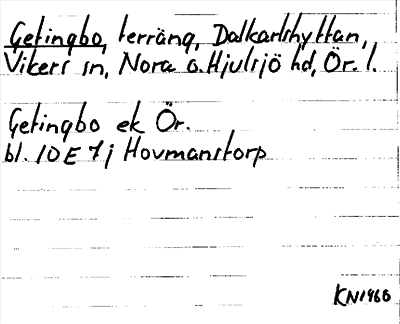 Getingbo, terräng, Dalkarlshyttan,
Vikers sn, Nora o. Hjulsjö hd, Ör. l.
Getingbo ek Ör.
bl. 10E 7j Hovmanstorp
KN1966